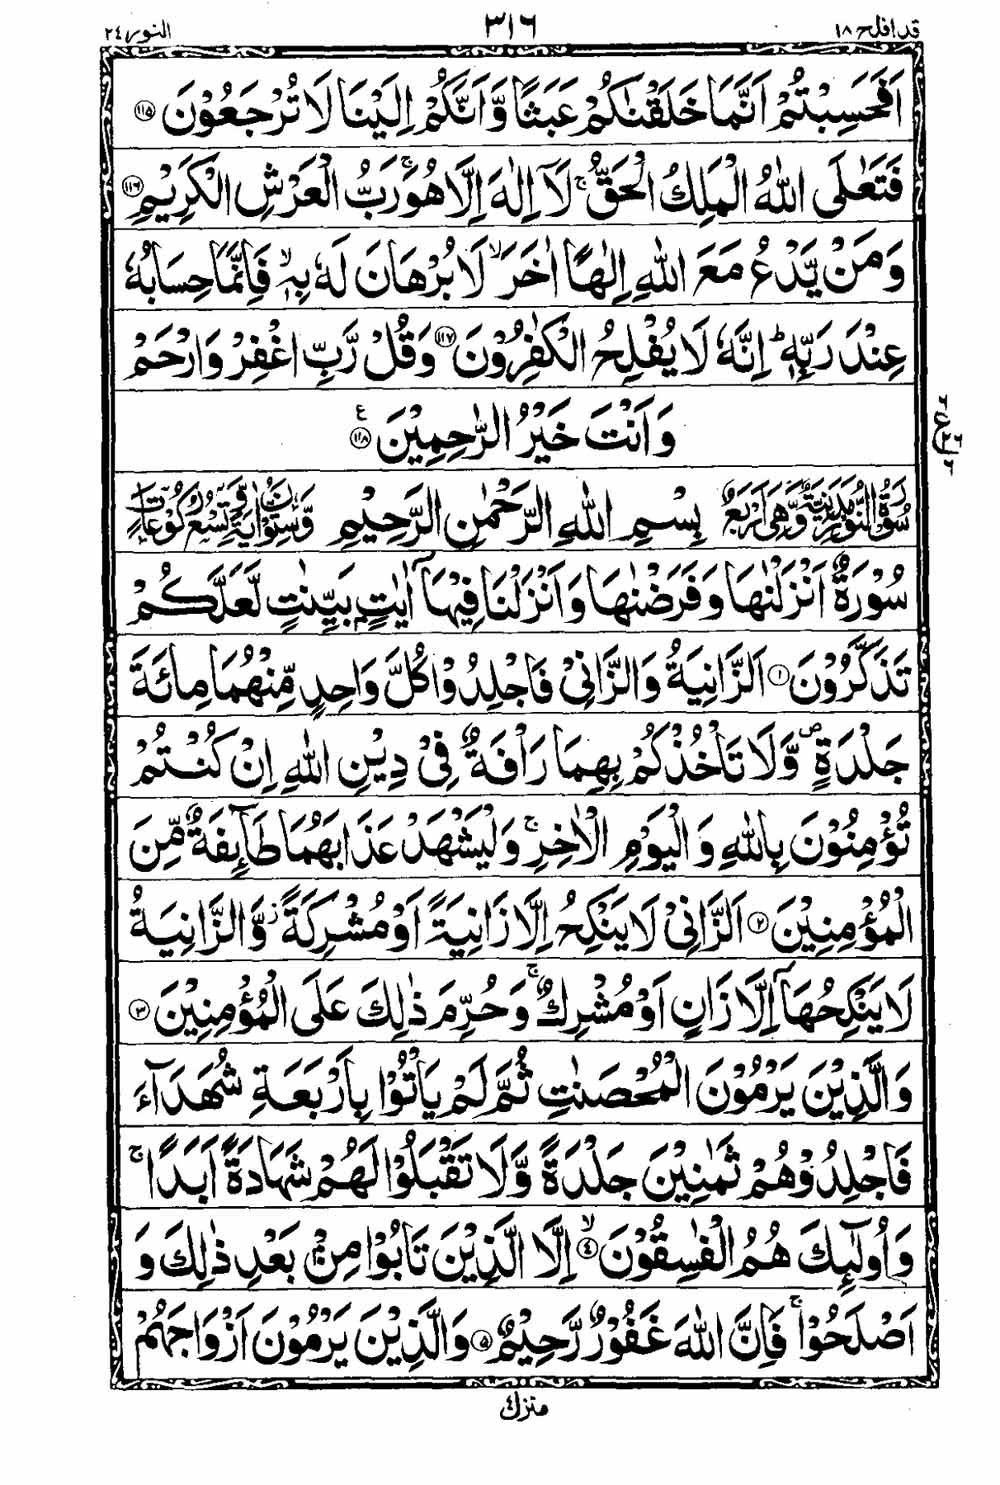 قد افلح ١٨
٣١٦
النور ٢٤
اَفَحَسِبْتُمْ اَنَّمَا خَلَقْنٰكُمْ عَبَثًا وَّاَنَّكُمْ اِلَيْنَا لَا تُرْجَعُوْنَ ۝١١٥
فَتَعٰلَى اللّٰهُ الْمَلِكُ الْحَقُّ ۚ لَآ اِلٰهَ اِلَّا هُوَ ۚ رَبُّ الْعَرْشِ الْكَرِيْمِ ۝١١٦
وَمَنْ يَّدْعُ مَعَ اللّٰهِ اِلٰهًا اٰخَرَ ۙ لَا بُرْهَانَ لَهٗ بِهٖ ۙ فَاِنَّمَا حِسَابُهٗ
عِنْدَ رَبِّهٖ ؕ اِنَّهٗ لَا يُفْلِحُ الْكٰفِرُوْنَ ۝١١٧ وَقُلْ رَّبِّ اغْفِرْ وَارْحَمْ
وَاَنْتَ خَيْرُ الرّٰحِمِيْنَ ۝١١٨ ع
سُوْرَةُ النُّوْرِ مَدَنِيَّةٌ وَّهِىَ اَرْبَعٌ بِسْمِ اللّٰهِ الرَّحْمٰنِ الرَّحِيْمِ وَّسِتُّوْنَ اٰيَةً وَّتِسْعُ رُكُوْعَاتٍ
سُوْرَةٌ اَنْزَلْنٰهَا وَفَرَضْنٰهَا وَاَنْزَلْنَا فِيْهَآ اٰيٰتٍۢ بَيِّنٰتٍ لَّعَلَّكُمْ
تَذَكَّرُوْنَ ۝١ اَلزَّانِيَةُ وَالزَّانِيْ فَاجْلِدُوْا كُلَّ وَاحِدٍ مِّنْهُمَا مِائَةَ
جَلْدَةٍ ۪ وَّلَا تَاْخُذْكُمْ بِهِمَا رَاْفَةٌ فِيْ دِيْنِ اللّٰهِ اِنْ كُنْتُمْ
تُؤْمِنُوْنَ بِاللّٰهِ وَالْيَوْمِ الْاٰخِرِ ۚ وَلْيَشْهَدْ عَذَابَهُمَا طَآئِفَةٌ مِّنَ
الْمُؤْمِنِيْنَ ۝٢ اَلزَّانِيْ لَا يَنْكِحُ اِلَّا زَانِيَةً اَوْ مُشْرِكَةً ؗ وَّالزَّانِيَةُ
لَا يَنْكِحُهَآ اِلَّا زَانٍ اَوْ مُشْرِكٌ ۚ وَحُرِّمَ ذٰلِكَ عَلَى الْمُؤْمِنِيْنَ ۝٣
وَالَّذِيْنَ يَرْمُوْنَ الْمُحْصَنٰتِ ثُمَّ لَمْ يَاْتُوْا بِاَرْبَعَةِ شُهَدَآءَ
فَاجْلِدُوْهُمْ ثَمٰنِيْنَ جَلْدَةً وَّلَا تَقْبَلُوْا لَهُمْ شَهَادَةً اَبَدًا ۚ
وَاُولٰٓئِكَ هُمُ الْفٰسِقُوْنَ ۙ۝٤ اِلَّا الَّذِيْنَ تَابُوْا مِنْۢ بَعْدِ ذٰلِكَ وَ
اَصْلَحُوْا ۚ فَاِنَّ اللّٰهَ غَفُوْرٌ رَّحِيْمٌ ۝٥ وَالَّذِيْنَ يَرْمُوْنَ اَزْوَاجَهُمْ
منزل ٤